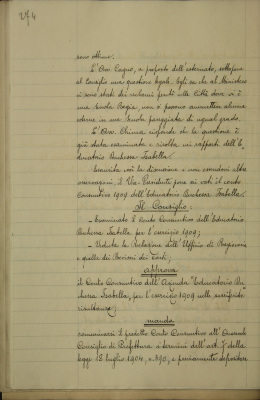 274
sono ottime.
L'Avv. Cagno, a proposito dell'internato, sottopone
al Consiglio una questione legale. Egli sa che al Ministero
si sono stati dei reclami perché nelle Città dove vi è
una Scuola Regia, non si possono ammettere alunne
esterne in una Scuola pareggiata di ugual grado.
L'Avv. Chinea, risponde che la questione è
già stata esaminata e risolta nei rapporti dell'E-
ducatorio Duchessa Isabella.
Esaurita così la discussione e non essendovi altre
osservazioni, il Vice Presidente pone ai voti il Conto
Consuntivo 1909 dell'Educatorio Duchessa Isabella.
Il Consiglio:
- Esaminato il Conto Consuntivo dell'Educatorio
Duchessa Isabella per l'esercizio 1909;
- Veduta la Relazione dell'Ufficio di Ragioneria
e quella dei Revisori dei Conti;
approva
il Conto Consuntivo dell'Azienda "Educatorio Du-
chessa Isabella, per l'esercizio 1909 nelle suriferite
risultanze;
manda
comunicarsi il predetto Conto Consuntivo all'Onorevole
Consiglio di Prefettura ai termini dell'art. 7 della
legge 18 luglio 1904, n. 390, e previamente depositare